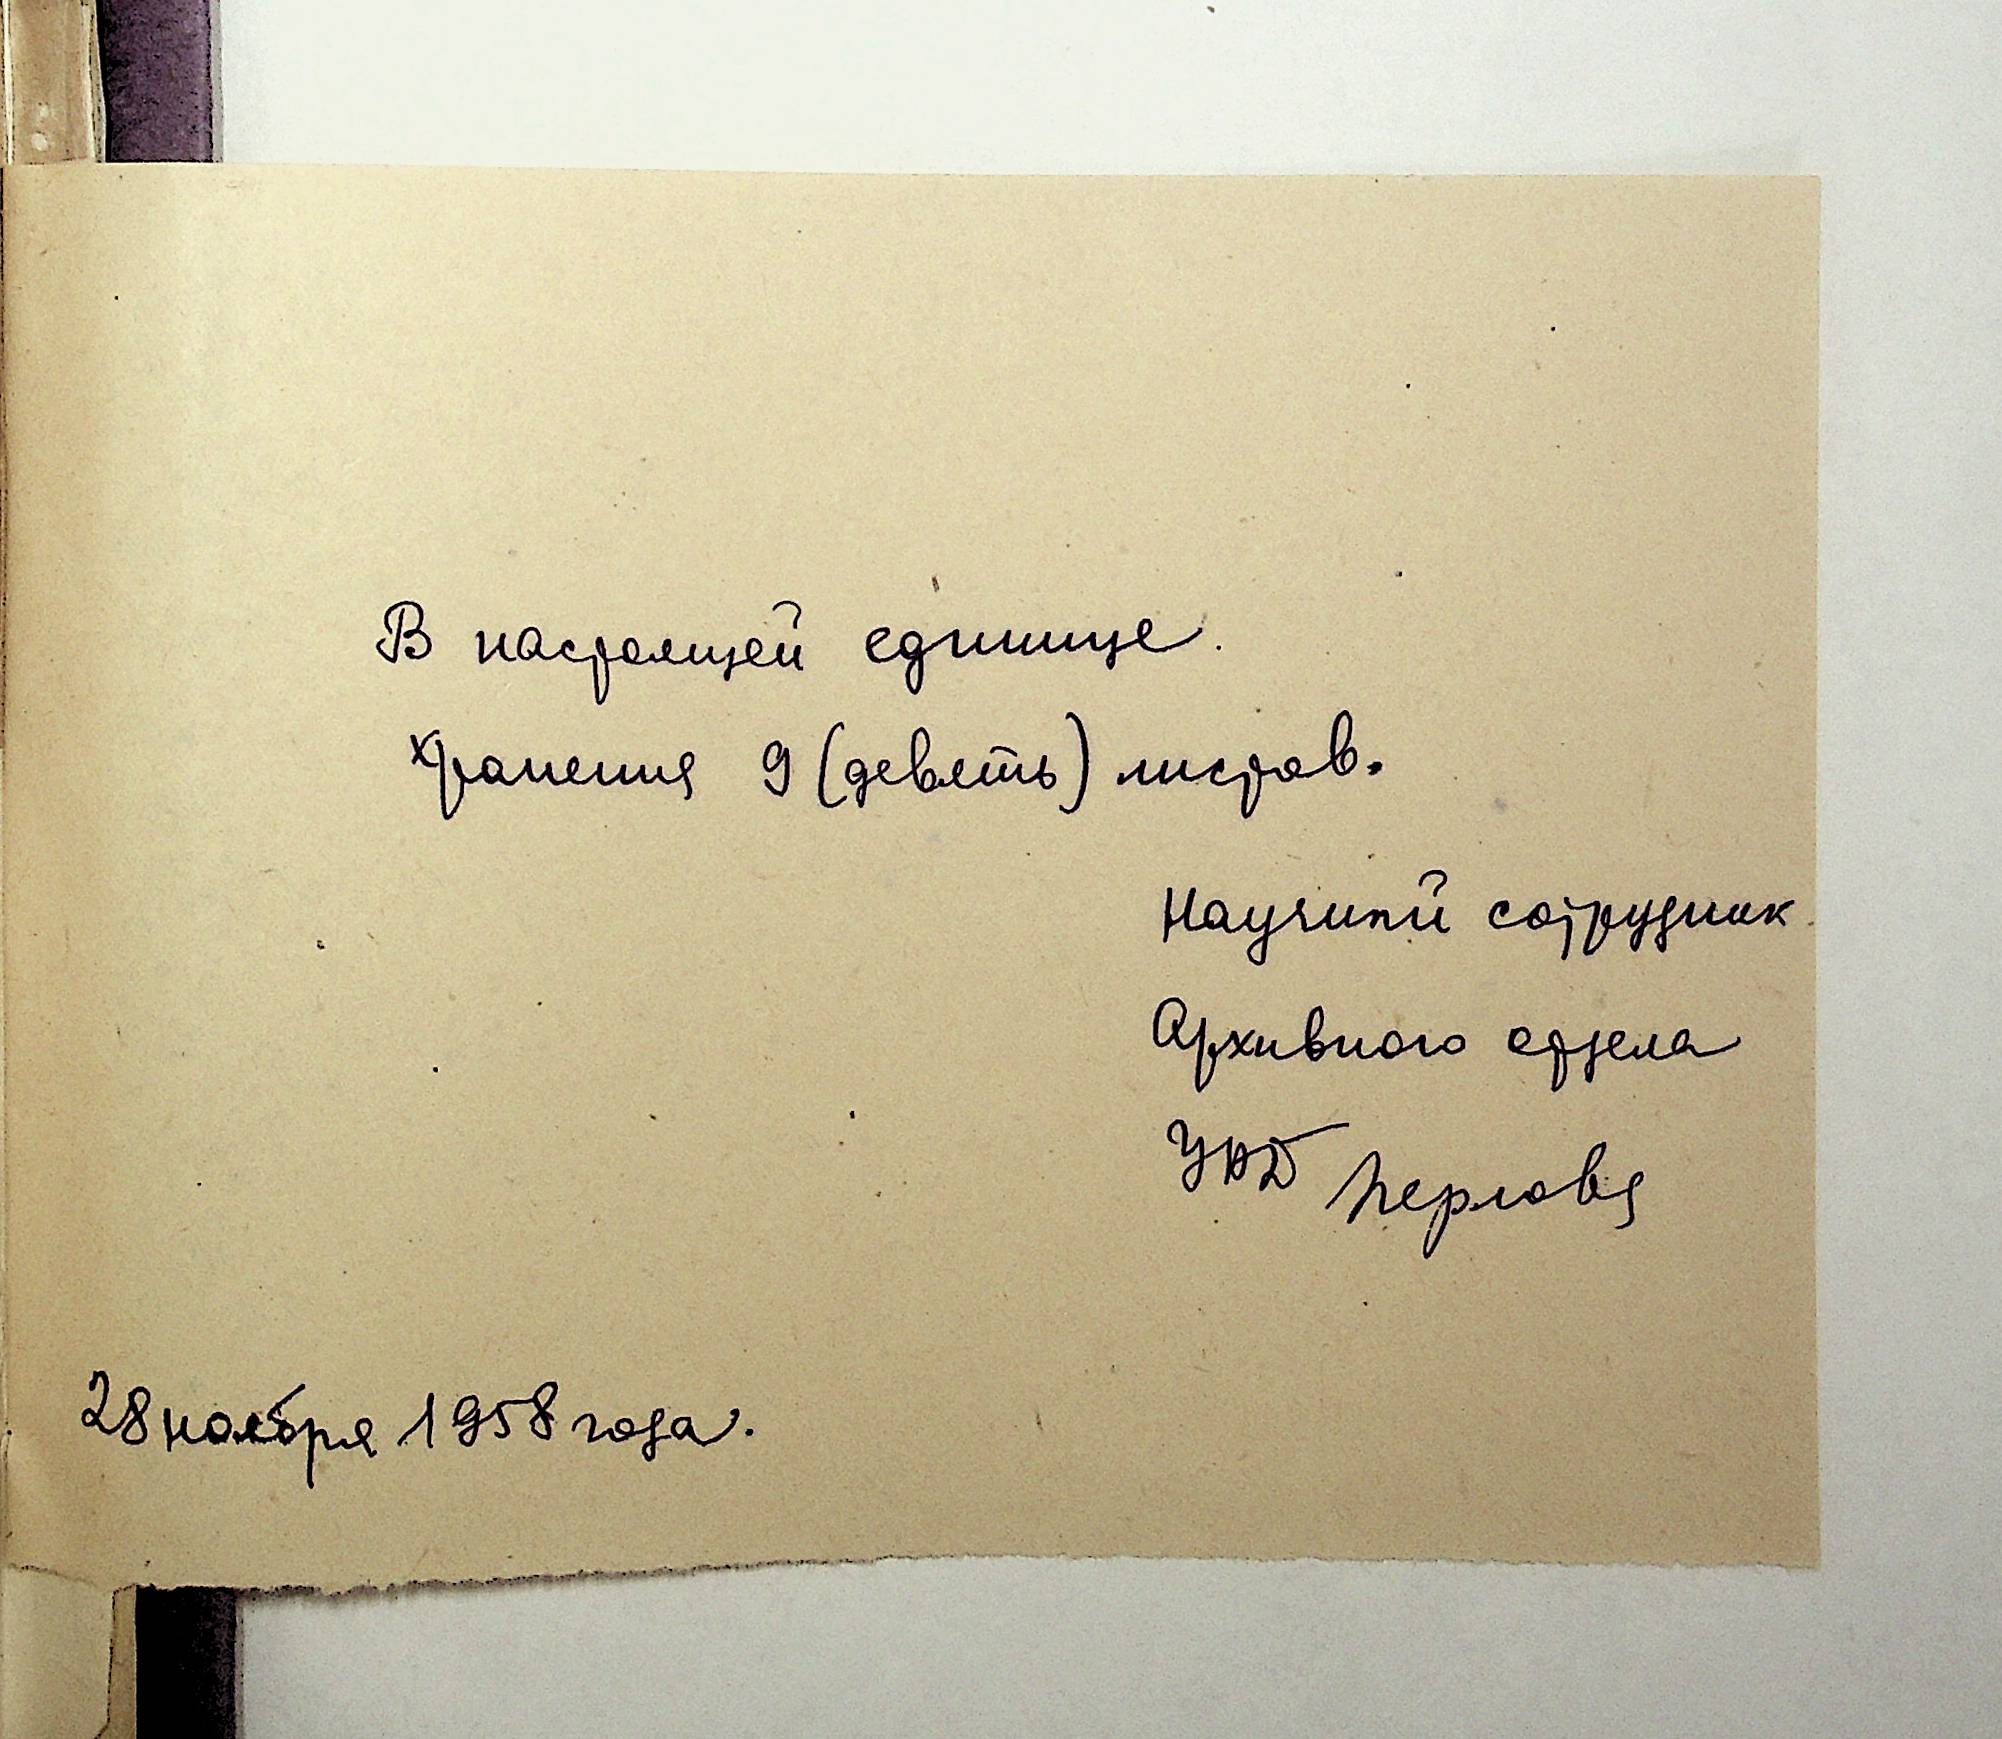 В настоящей единице
хранения 9 (девять) листов.
Научный сотрудник
Архивного отдела
28 ноября 1958 года.